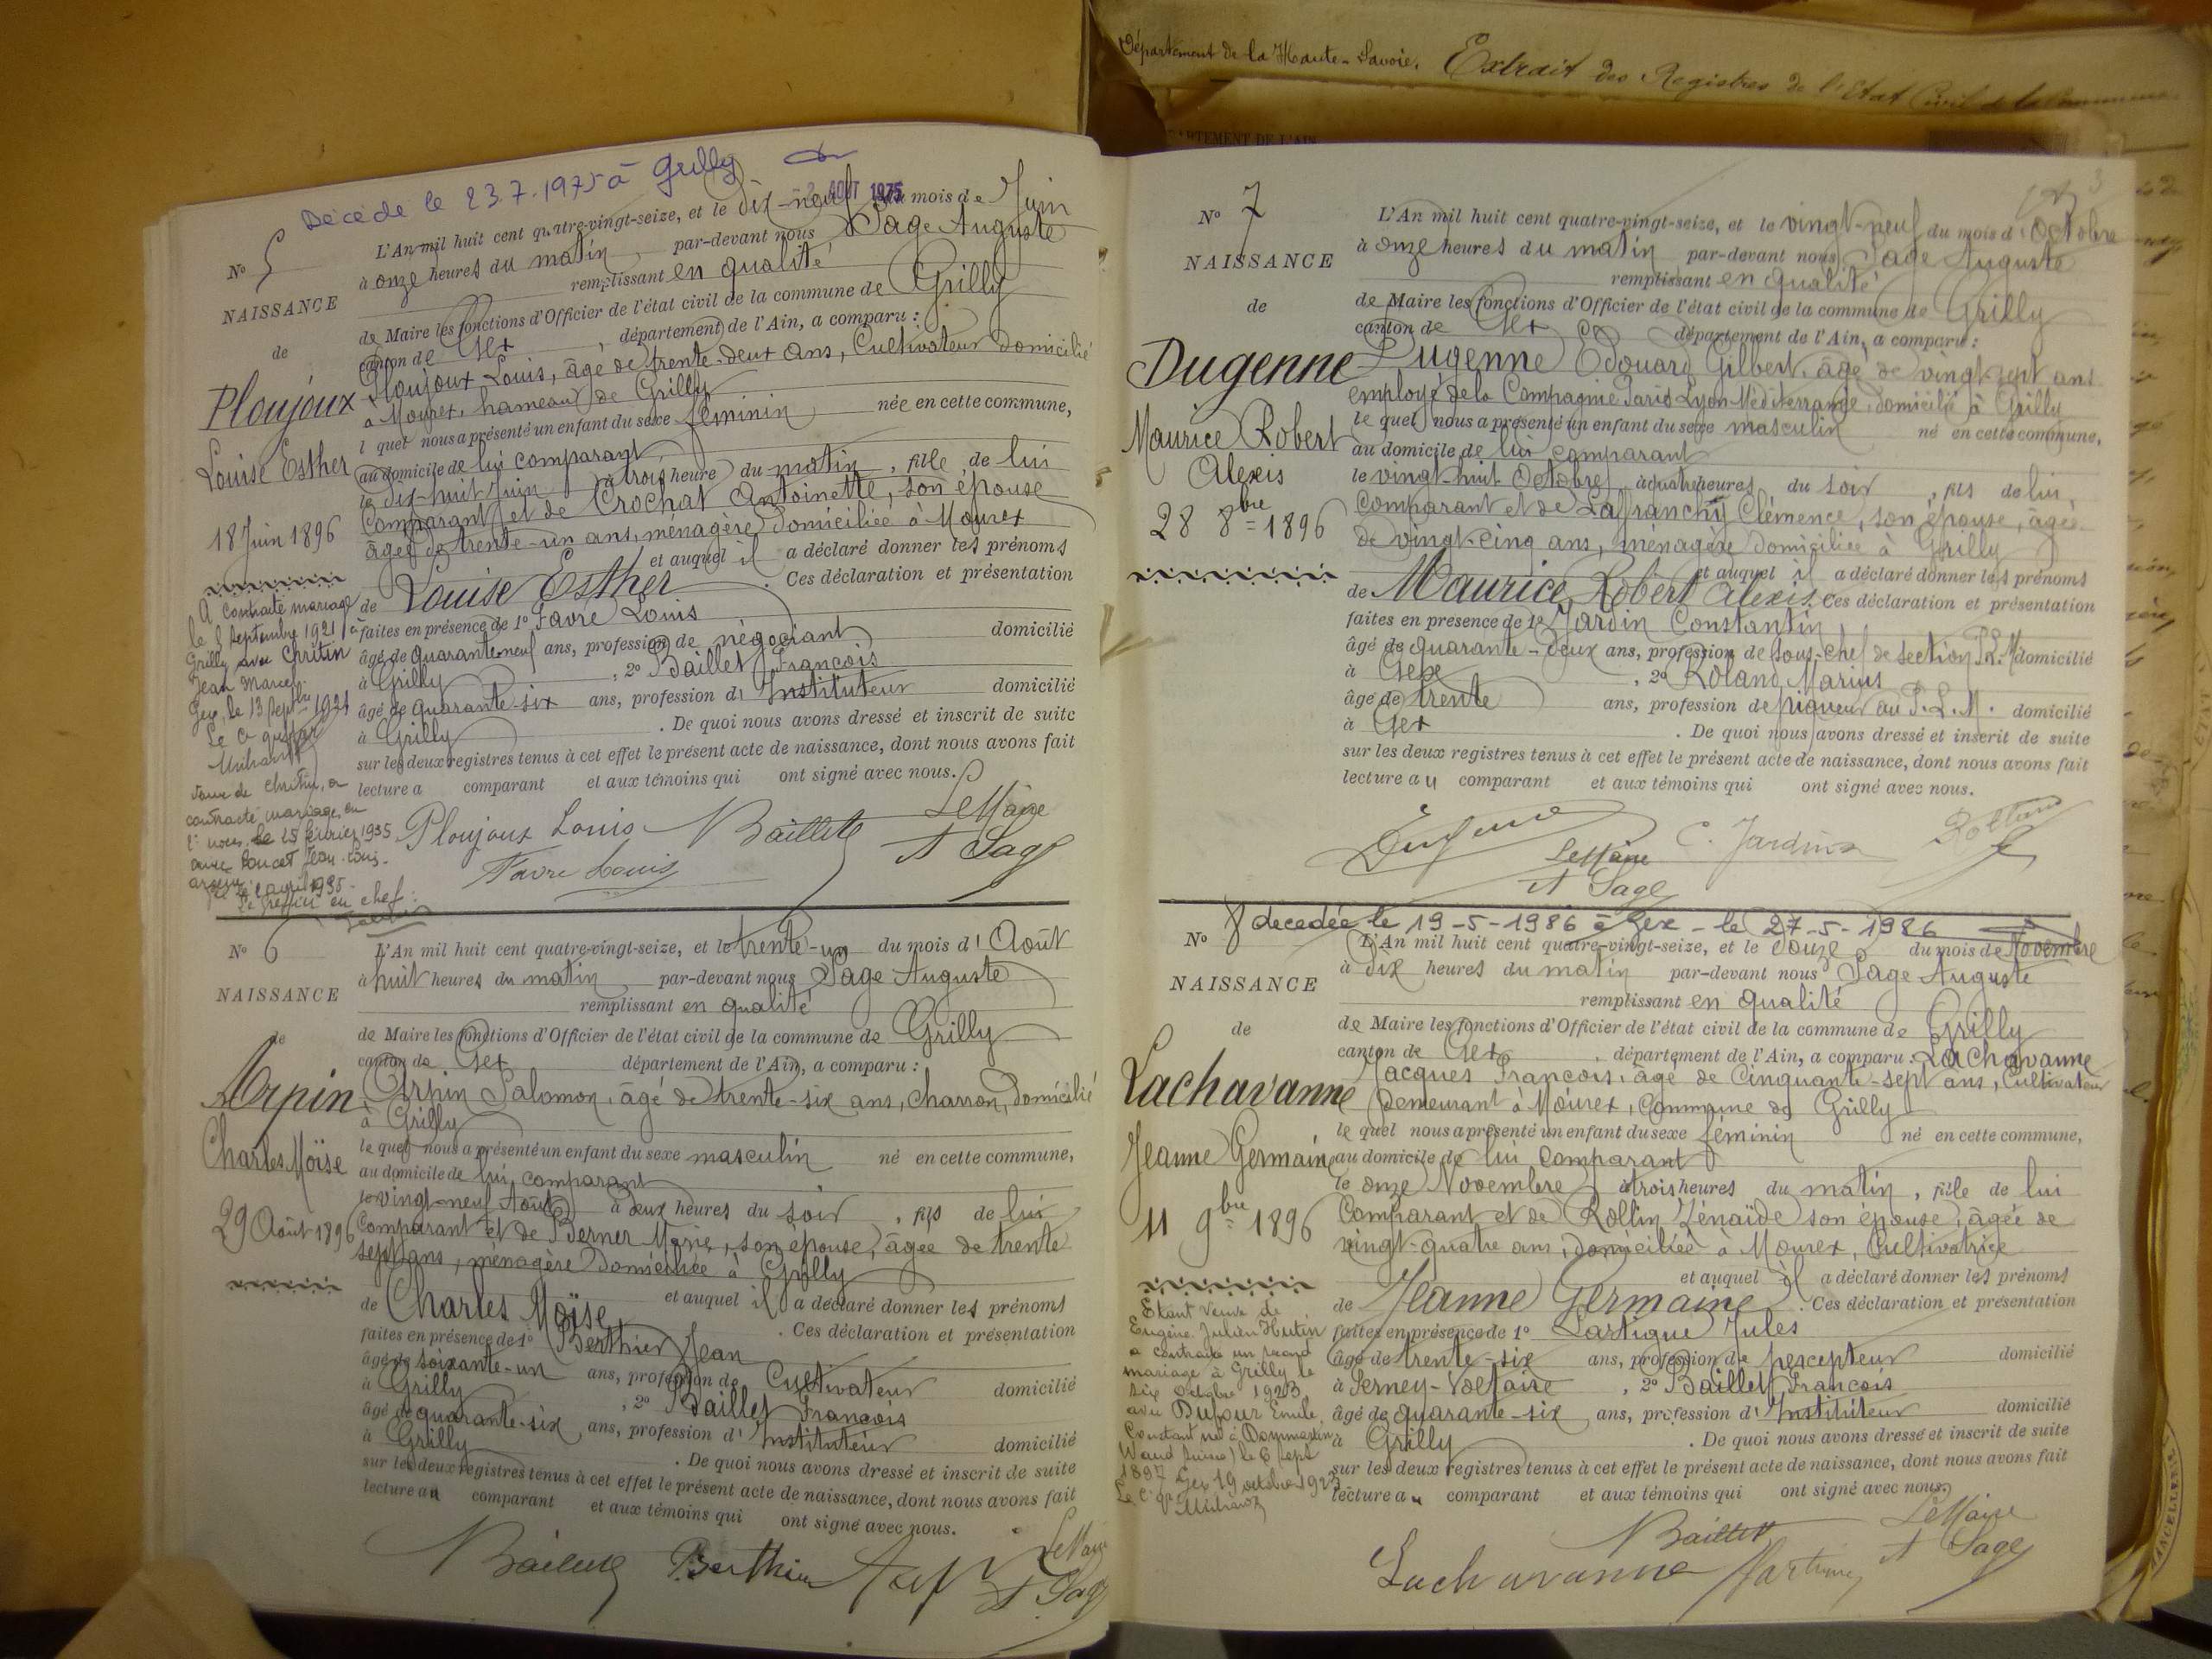 Département de la Haute-Savoie. Extrait des Registres de l'Etat Civil de la Commune
PARTEMENT DE L'AIN
Décédé le 23.7.1975 à Grilly
2 AOUT 1975
N° 5
NAISSANCE
de
Ploujoux
Louise Esther
18 Juin 1896
A contracté mariage
le 8 septembre 1921 à
Grilly avec Chrétin
Jean Marcel
Gex, le 13 septbre 1921
Le
contracté mariage, en
2e noces, le 25 février 1935
avec Poncet Jean
avril 1935.
Le greffier en chef:
L'An mil huit cent quatre-vingt-seize, et le dix-neuf du mois de Juin
à onze heures du matin par-devant nous Sage Auguste
remplissant en qualité
de Maire les fonctions d'Officier de l'état civil de la commune de Grilly
canton de Gex, département de l'Ain, a comparu :
Ploujoux Louis, âgé de trente-deux ans, Cultivateur domicilié
à Mourex, hameau de Grilly
l quel nous a présenté un enfant du sexe féminin née en cette commune,
au domicile de lui comparant
le dix-huit Juin à trois heure du matin, fille de lui
Comparant et de Crochat Antoinette, son épouse
âgée de trente-un ans, ménagère domiciliée à Mourex
et auquel il a déclaré donner les prénoms
de Louise Esther. Ces déclaration et présentation
faites en présence de 1° Favre Louis
âgé de quarante-neuf ans, profession de négociant domicilié
à Grilly, 2° Baillet François
âgé de quarante-six ans, profession d'Instituteur domicilié
à Grilly. De quoi nous avons dressé et inscrit de suite
sur les deux registres tenus à cet effet le présent acte de naissance, dont nous avons fait
lecture a comparant et aux témoins qui ont signé avec nous.
Ploujoux Louis Baillet Le Maire
Favre Louis A Sage
N° 6
NAISSANCE
de
Arpin
Charles Moïse
29 Août 1896
L'An mil huit cent quatre-vingt-seize, et le trente-un du mois d'Août
à huit heures du matin par-devant nous Sage Auguste
remplissant en qualité
de Maire les fonctions d'Officier de l'état civil de la commune de Grilly
canton de Gex département de l'Ain, a comparu :
Arpin Salomon, âgé de trente-six ans, charron, domicilié
à Grilly
le quel nous a présenté un enfant du sexe masculin né en cette commune,
au domicile de lui comparant
le vingt-neuf Août à deux heures du soir, fils de lui
Comparant et de Berner Marie, son épouse, âgée de trente
sept ans, ménagère domiciliée à Grilly
et auquel il a déclaré donner les prénoms
de Charles Moïse. Ces déclaration et présentation
faites en présence de 1° Berthier Jean
âgé de soixante-un ans, profession de Cultivateur domicilié
à Grilly, 2° Baillet François
âgé de quarante-six ans, profession d'Instituteur domicilié
à Grilly. De quoi nous avons dressé et inscrit de suite
sur les deux registres tenus à cet effet le présent acte de naissance, dont nous avons fait
lecture au comparant et aux témoins qui ont signé avec nous.
Baillet Berthier Le Maire
A Sage
3
N° 7
NAISSANCE
de
Dugenne
Maurice Robert
Alexis
28 8bre 1896
L'An mil huit cent quatre-vingt-seize, et le vingt-neuf du mois d'Octobre
à onze heures du matin par-devant nous Sage Auguste
remplissant en qualité
de Maire les fonctions d'Officier de l'état civil de la commune de Grilly
canton de Gex département de l'Ain, a comparu :
Dugenne Edouard Gilbert, âgé de vingt-sept ans
employé de la Compagnie Paris Lyon Méditerranée, domicilié à Grilly
le quel nous a présenté un enfant du sexe masculin né en cette commune,
au domicile de lui comparant
le vingt-huit Octobre, à quatre heures du soir, fils de lui,
Comparant et de Lafranchy Clémence, son épouse, âgée
de vingt-cinq ans, ménagère domiciliée à Grilly
et auquel il a déclaré donner les prénoms
de Maurice Robert Alexis. Ces déclaration et présentation
faites en présence de 1° Jardin Constantin
âgé de quarante-deux ans, profession de sous-chef de section P.L.M domicilié
à Gex, 2° Roland Marius
âgé de trente ans, profession de piqueur au P.L.M. domicilié
à Gex. De quoi nous avons dressé et inscrit de suite
sur les deux registres tenus à cet effet le présent acte de naissance, dont nous avons fait
lecture au comparant et aux témoins qui ont signé avec nous.
Dugenne Le Maire C. Jardin Rolland
A Sage
N° 8 décédée le 19-5-1986 à Gex - le 27-5-1986
NAISSANCE
de
Lachavanne
Jeanne Germaine
11 9bre 1896
Etant veuve de
Eugène Julien Hutin
a contracté un second
mariage à Grilly le
six octobre 1923
avec Dufour Emile
Constant né à Dommartin
Waud Suisse) le 6 sept
1897 Gex 19 octobre 1923
L'An mil huit cent quatre-vingt-seize, et le douze du mois de Novembre
à dix heures du matin par-devant nous Sage Auguste
remplissant en qualité
de Maire les fonctions d'Officier de l'état civil de la commune de Grilly
canton de Gex, département de l'Ain, a comparu : Lachavanne
Jacques François, âgé de Cinquante-sept ans, Cultivateur
demeurant à Mourex, Commune de Grilly
le quel nous a présenté un enfant du sexe féminin né en cette commune,
au domicile de lui comparant
le onze Novembre à trois heures du matin, fille de lui
Comparant et de Rollin Zénaïde son épouse, âgée de
vingt-quatre ans, domiciliée à Mourex, Cultivatrice
et auquel il a déclaré donner les prénoms
de Jeanne Germaine. Ces déclaration et présentation
faites en présence de 1° Lartigue Jules
âgé de trente-six ans, profession de percepteur domicilié
à Ferney-Voltaire, 2° Baillet François
âgé de quarante-six ans, profession d'Instituteur domicilié
à Grilly. De quoi nous avons dressé et inscrit de suite
sur les deux registres tenus à cet effet le présent acte de naissance, dont nous avons fait
lecture au comparant et aux témoins qui ont signé avec nous.
Baillet Le Maire
Lachavanne Lartigue A Sage